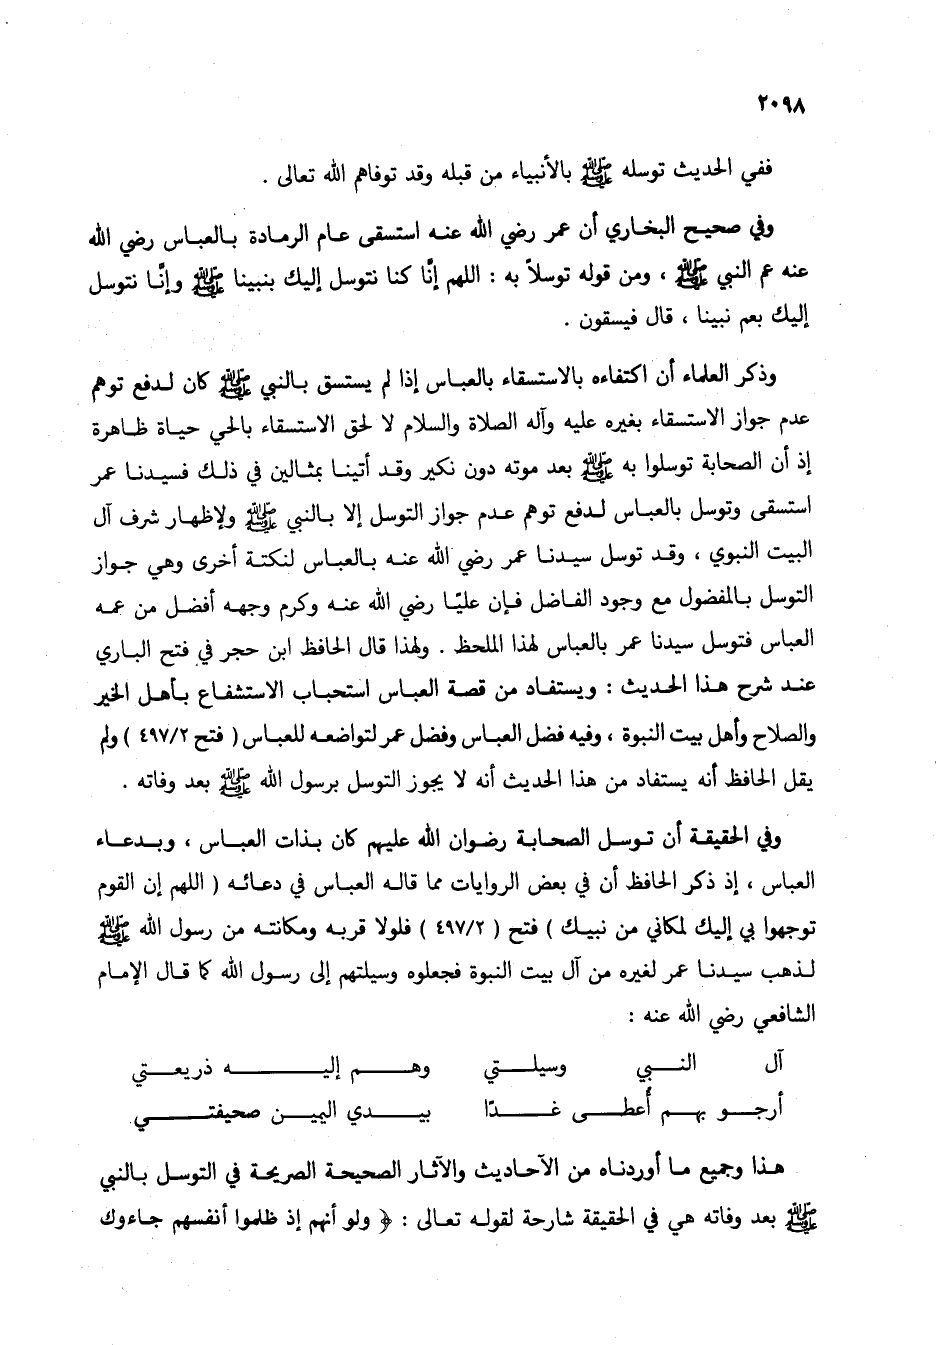 ٢٠٩٨
ففي الحديث توسله ﷺ بالأنبياء من قبله وقد توفاهم الله تعالى .
وفي صحيح البخاري أن عمر رضي الله عنه استسقى عام الرمادة بالعباس رضي الله
عنه عم النبي ﷺ ، ومن قوله توسلاً به : اللهم إنَّا كنا نتوسل إليك بنبينا ﷺ وإنَّا نتوسل
إليك بعم نبينا ، قال فيسقون .
وذكر العلماء أن اكتفاءه بالاستسقاء بالعباس إذا لم يستسق بالنبي ﷺ كان لدفع توهم
عدم جواز الاستسقاء بغيره عليه وآله الصلاة والسلام لا لحق الاستسقاء بالحي حياة ظاهرة
إذ أن الصحابة توسلوا به ﷺ بعد موته دون نكير وقد أتينا بمثالين في ذلك فسيدنا عمر
استسقى وتوسل بالعباس لدفع توهم عدم جواز التوسل إلا بالنبي ﷺ ولإظهار شرف آل
البيت النبوي ، وقد توسل سيدنا عمر رضي الله عنه بالعباس لنكتة أخرى وهي جواز
التوسل بالمفضول مع وجود الفاضل فإن عليًا رضي الله عنه وكرم وجهه أفضل من عمه
العباس فتوسل سيدنا عمر بالعباس لهذا الملحظ . ولهذا قال الحافظ ابن حجر في فتح الباري
عند شرح هذا الحديث : ويستفاد من قصة العباس استحباب الاستشفاع بأهل الخير
والصلاح وأهل بيت النبوة ، وفيه فضل العباس وفضل عمر لتواضعه للعباس ( فتح ٤٩٧/٢ ) ولم
يقل الحافظ أنه يستفاد من هذا الحديث أنه لا يجوز التوسل برسول الله ﷺ بعد وفاته .
وفي الحقيقة أن توسل الصحابة رضوان الله عليهم كان بذات العباس ، وبدعاء
العباس ، إذ ذكر الحافظ أن في بعض الروايات مما قاله العباس في دعائه ( اللهم إن القوم
توجهوا بي إليك لمكاني من نبيك ) فتح ( ٤٩٧/٢ ) فلولا قربه ومكانته من رسول الله ﷺ
لذهب سيدنا عمر لغيره من آل بيت النبوة فجعلوه وسيلتهم إلى رسول الله كما قال الإمام
الشافعي رضي الله عنه :
آل النبي وسيلتي وهم إليه ذريعتي
أرجو بهم أُعطى غدًا بيدي اليمين صحيفتي
هذا وجميع ما أوردناه من الأحاديث والآثار الصحيحة الصريحة في التوسل بالنبي
ﷺ بعد وفاته هي في الحقيقة شارحة لقوله تعالى : ﴿ ولو أنهم إذ ظلموا أنفسهم جاءوك